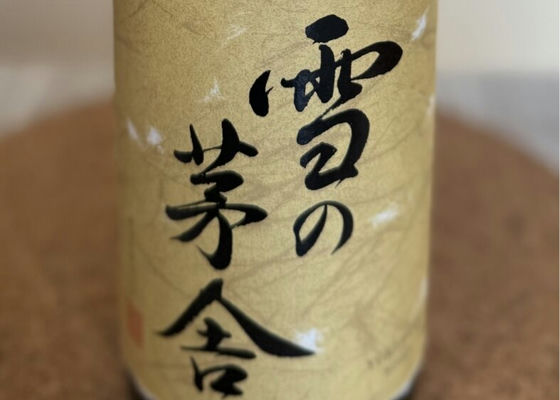 雪の
茅舎